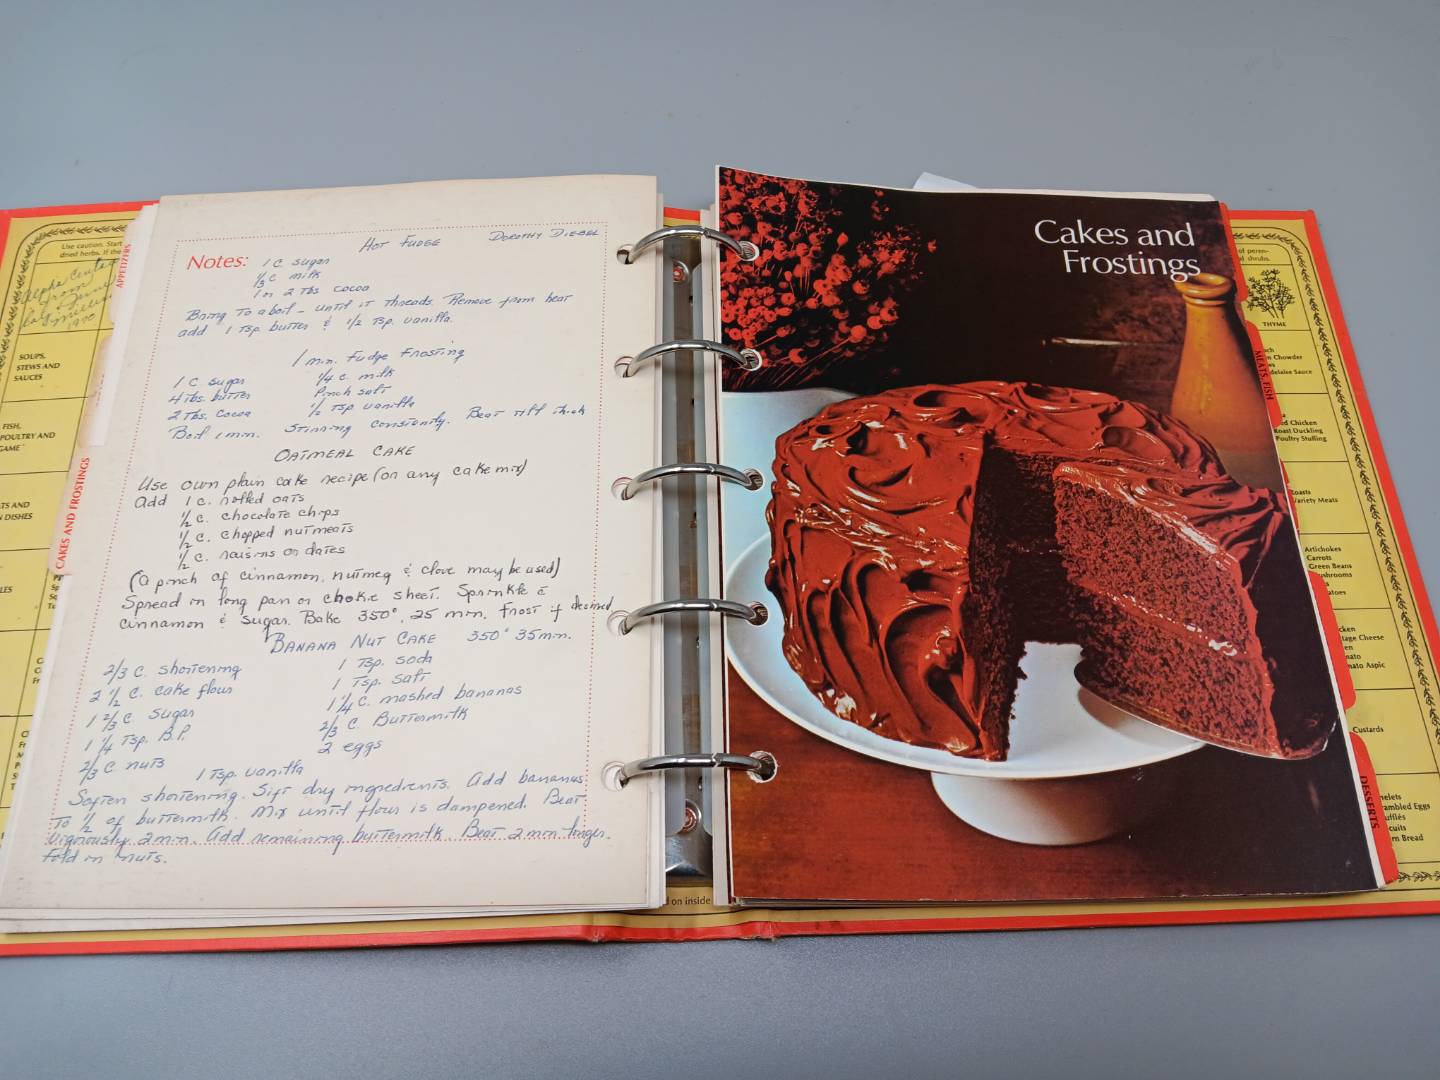 Use caution. Start
dried herbs. If the
Alpha Center
From
1970
APPETIZERS
SOUPS,
STEWS AND
SAUCES
FISH,
POULTRY AND
GAME
CAKES AND FROSTINGS
Notes:
HOT FUDGE DOROTHY DIEBEL
1 C sugar
1/3 C milk
1 or 2 Tbs cocoa
Bring to a boil - until it threads. Remove from heat
add 1 Tsp. butter & 1/2 Tsp. vanilla.
1 min. Fudge Frosting
1 C sugar 1/4 C. milk
4 Tbs. butter Pinch salt
2 Tbs. cocoa 1/2 Tsp vanilla
Boil 1 min. Stirring constantly. Beat till thick
OATMEAL CAKE
Use own plain cake recipe (or any cake mix)
Add 1 C. rolled oats
1/2 C. chocolate chips
1/2 C. chopped nutmeats
1/2 C. raisins or dates
(a pinch of cinnamon, nutmeg & clove may be used)
Spread in long pan or cookie sheet. Sprinkle c̄
cinnamon & sugar. Bake 350°, 25 min. Frost if desired
BANANA NUT CAKE 350° 35 min.
2/3 C. shortening 1 Tsp. soda
2 1/2 C. cake flour 1 Tsp. salt
1 2/3 C sugar 1 1/4 C. mashed bananas
1 1/4 Tsp. B.P. 2/3 C. Buttermilk
2/3 C. nuts 2 eggs
1 Tsp. vanilla
Soften shortening. Sift dry ingredients. Add bananas
To 1/2 of buttermilk. Mix until flour is dampened. Beat
Vigorously 2 min. Add remaining buttermilk. Beat 2 min longer.
Fold in nuts.
Cakes and
Frostings
THYME
MEATS, FISH
Chowder
Sauce
Chicken
Roast Duckling
Poultry Stuffing
Roasts
Variety Meats
Artichokes
Carrots
Green Beans
Cheese
Aspic
Custards
DESSERTS
Eggs
Bread
on inside